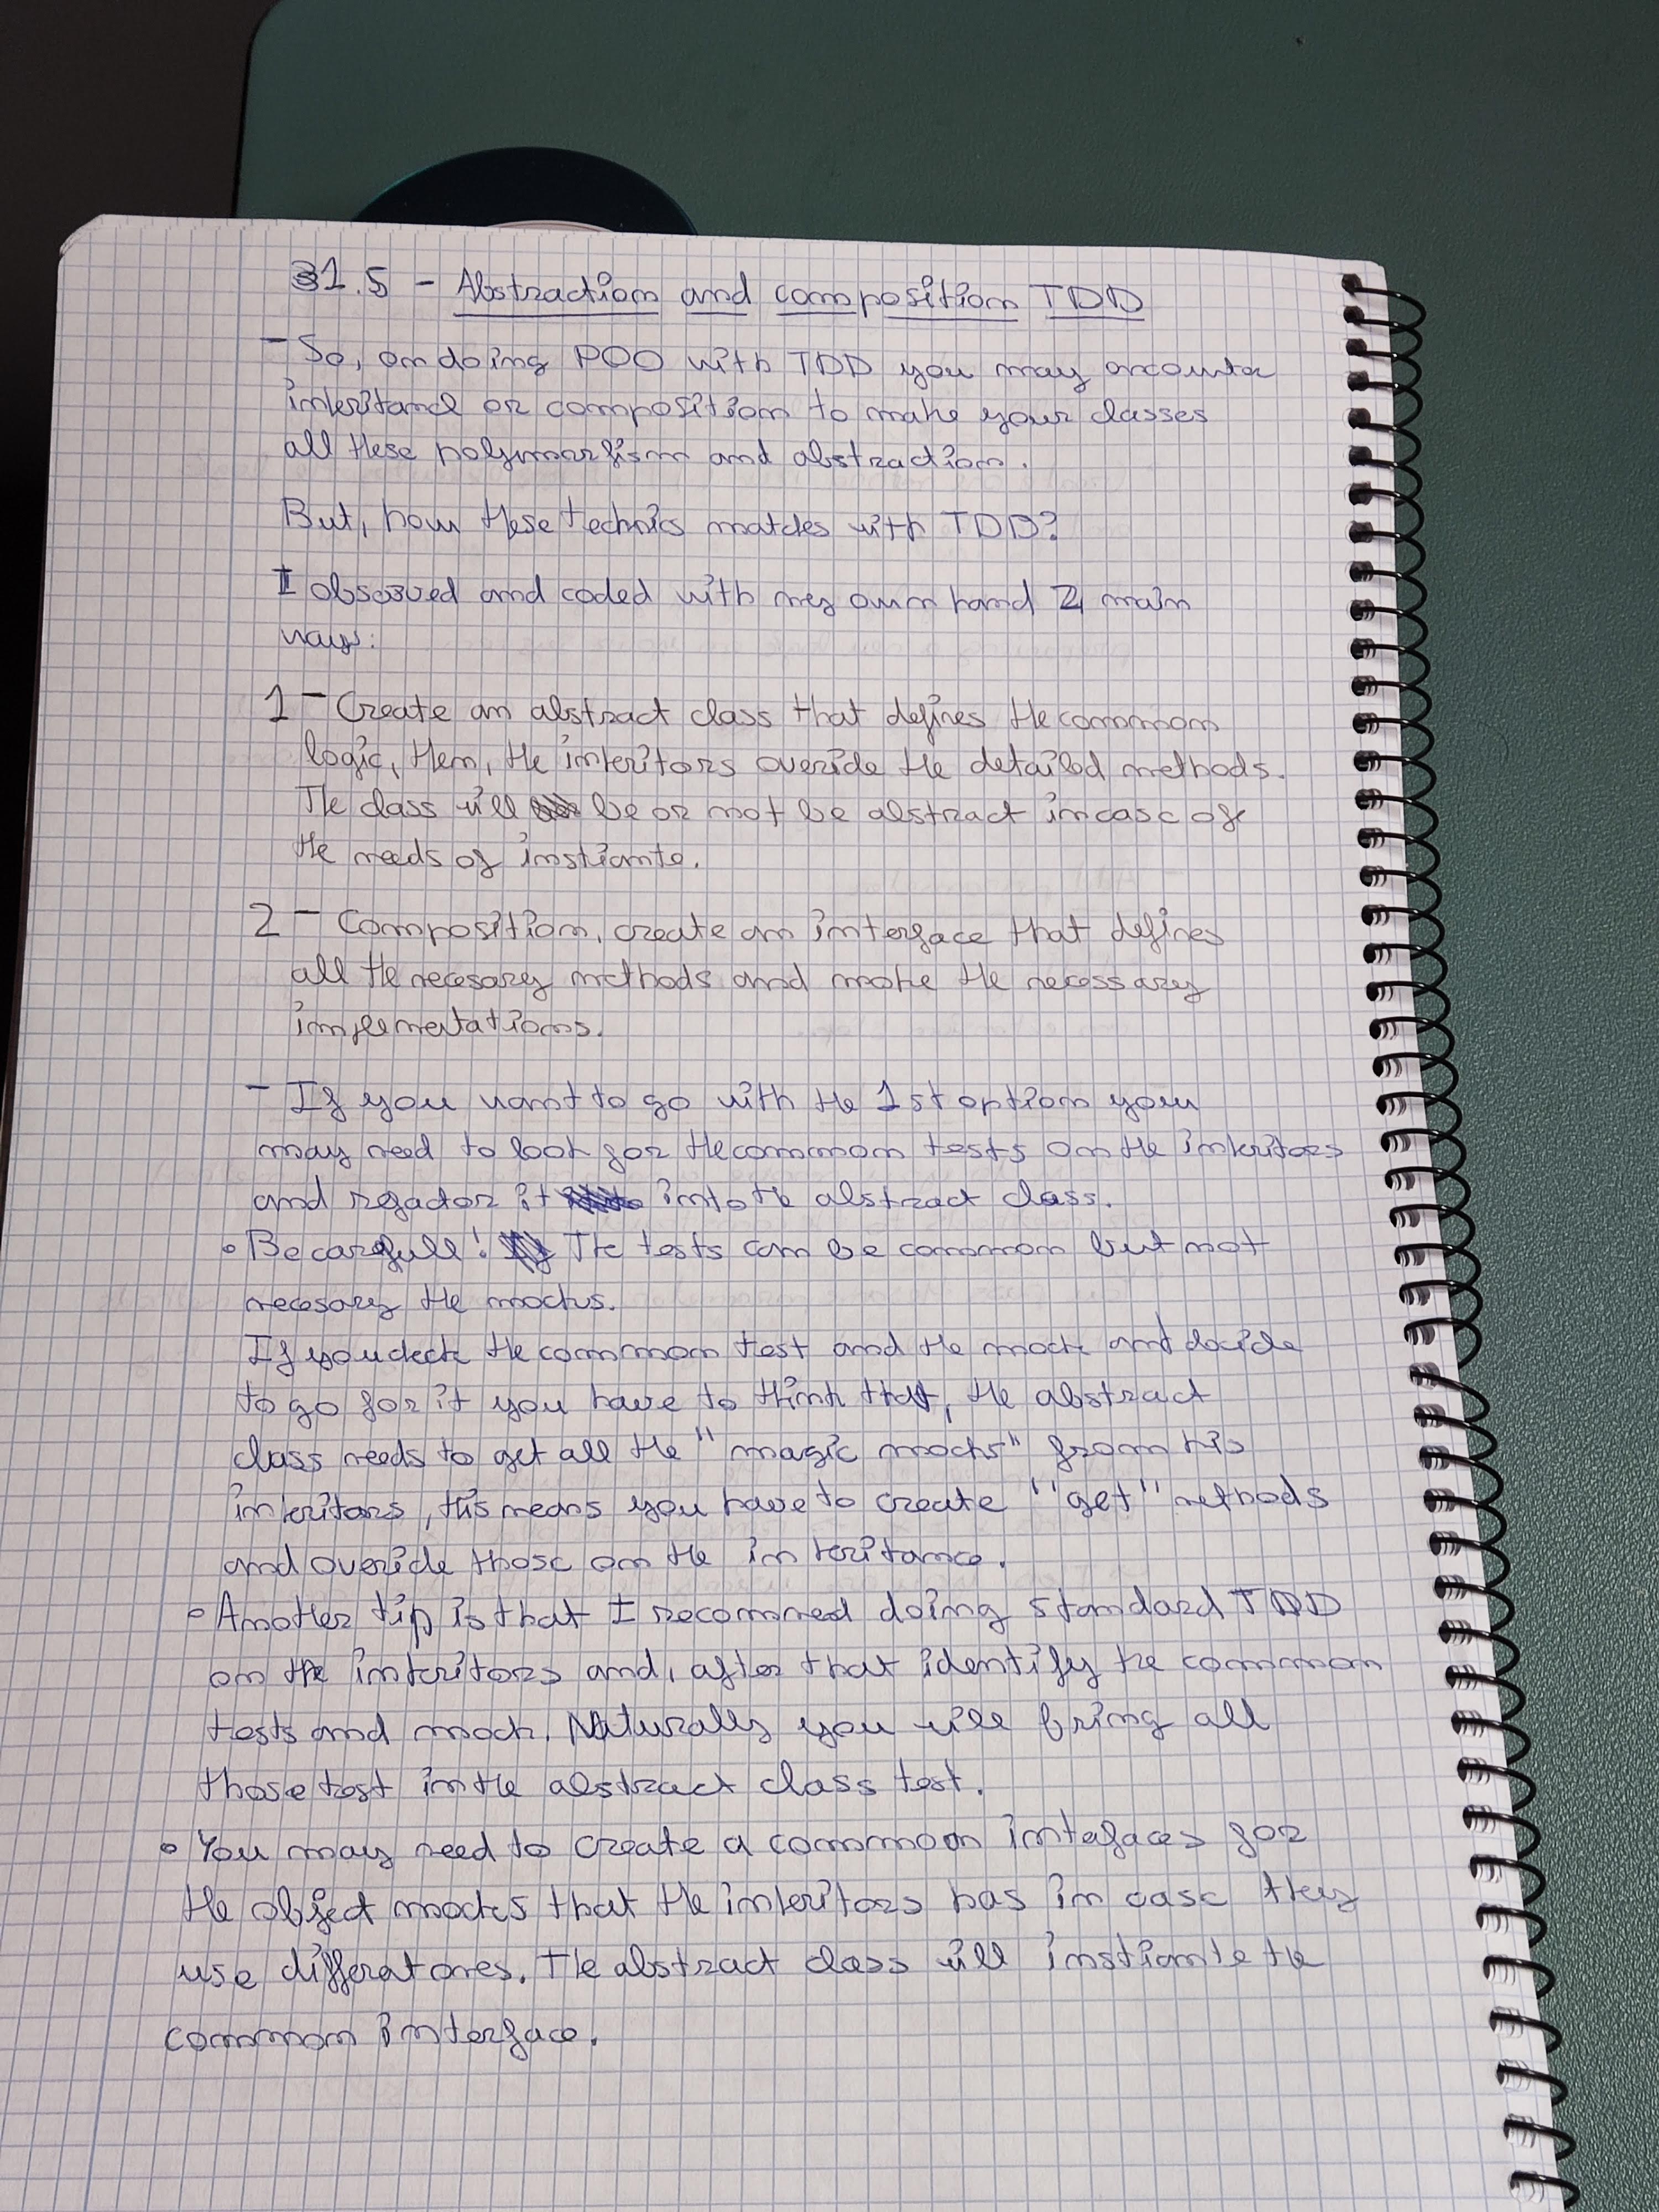 31.5 - Abstraction and composition TDD
- So, on doing POO with TDD you may encounter
inheritance or composition to make your classes
all these polymorfism and abstraction.
But, how these technics matches with TDD?
I observed and coded with my own hand 2 main
ways:
1 - Create an abstract class that defines the common
logic, then, the inheritors overide the detailed methods.
The class will be or not be abstract in case of
the needs of instiante.
2 - Composition, create an interface that defines
all the necesary methods and make the necessary
implementations.
- If you want to go with the 1st option you
may need to look for the common tests on the inheritors
and refactor it into the abstract class.
• Be carefull! The tests can be common but not
necesary the mocks.
If you check the common test and the mock and decide
to go for it you have to think that, the abstract
class needs to get all the "magic mocks" from his
inheritors, this means you have to create "get" methods
and overide those on the inheritance.
• Another tip is that I recommed doing standard TDD
on the inheritors and, after that identify the common
tests and mock. Naturally you will bring all
those test in the abstract class test.
• You may need to create a common intefaces for
the object mocks that the inheritors has in case they
use different ones. The abstract class will instiante the
common interface.